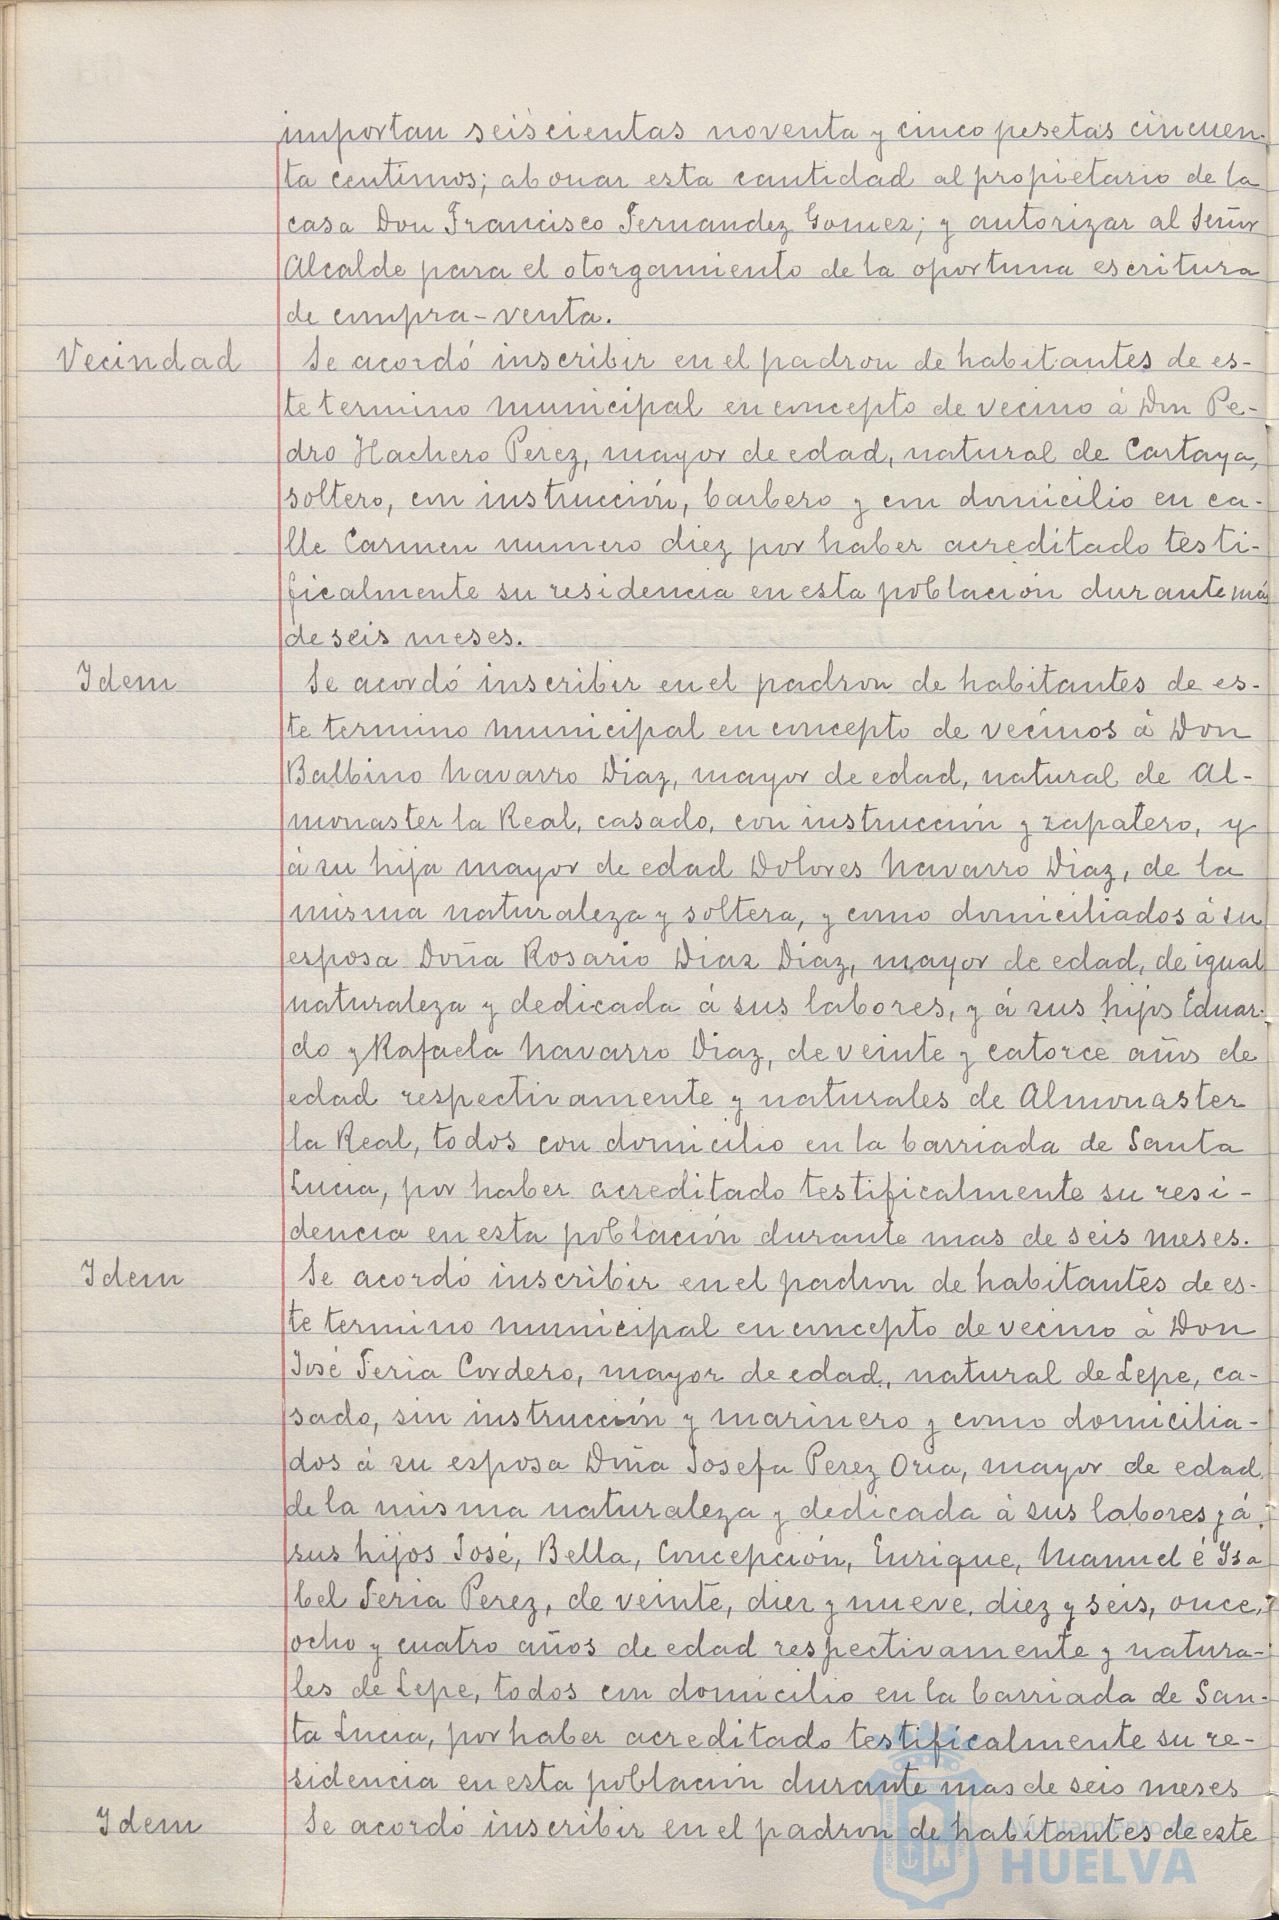 importan seiscientas noventa y cinco pesetas cincuen-
ta centimos; abonar esta cantidad al propietario de la
casa Don Francisco Fernandez Gomez; y autorizar al Señor
Alcalde para el otorgamiento de la oportuna escritura
de compra-venta.
Vecindad
Se acordó inscribir en el padron de habitantes de es-
te termino municipal en concepto de vecino á Don Pe-
dro Hachero Perez, mayor de edad, natural de Cartaya,
soltero, con instrucción, barbero y con domicilio en ca-
lle Carmen numero diez por haber acreditado testi-
ficalmente su residencia en esta población durante más
de seis meses.
Idem
Se acordó inscribir en el padron de habitantes de es-
te termino municipal en concepto de vecinos á Don
Balbino Navarro Diaz, mayor de edad, natural de Al-
monaster la Real, casado, con instrucción y zapatero, y
á su hija mayor de edad Dolores Navarro Diaz, de la
misma naturaleza y soltera, y como domiciliados á su
esposa Doña Rosario Diaz Diaz, mayor de edad, de igual
naturaleza y dedicada á sus labores, y á sus hijos Eduar-
do y Rafaela Navarro Diaz, de veinte y catorce años de
edad respectivamente y naturales de Almonaster
la Real, todos con domicilio en la barriada de Santa
Lucia, por haber acreditado testificalmente su resi-
dencia en esta población durante mas de seis meses.
Idem
Se acordó inscribir en el padron de habitantes de es-
te termino municipal en concepto de vecino á Don
José Feria Cordero, mayor de edad, natural de Lepe, ca-
sado, sin instrucción y marinero y como domicilia-
dos á su esposa Doña Josefa Perez Oria, mayor de edad,
de la misma naturaleza y dedicada á sus labores y á
sus hijos José, Bella, Concepción, Enrique, Manuel é Isa
bel Feria Perez, de veinte, diez y nueve, diez y seis, once,
ocho y cuatro años de edad respectivamente y natura-
les de Lepe, todos con domicilio en la barriada de San-
ta Lucia, por haber acreditado testificalmente su re-
sidencia en esta población durante mas de seis meses
Idem
Se acordó inscribir en el padron de habitantes de este
Ayuntamiento de
HUELVA